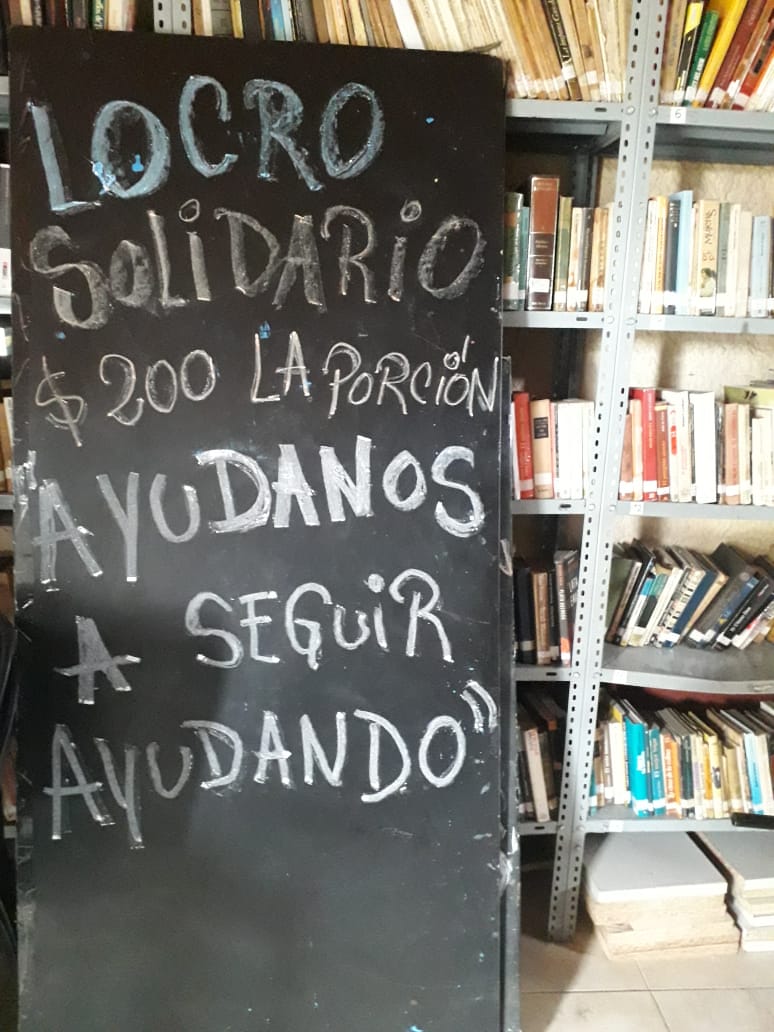 LOCRO
SOLiDARiO
$ 200 LA PORCiÓN
"AYUDANOS
A SEGUiR
AYUDANDO"